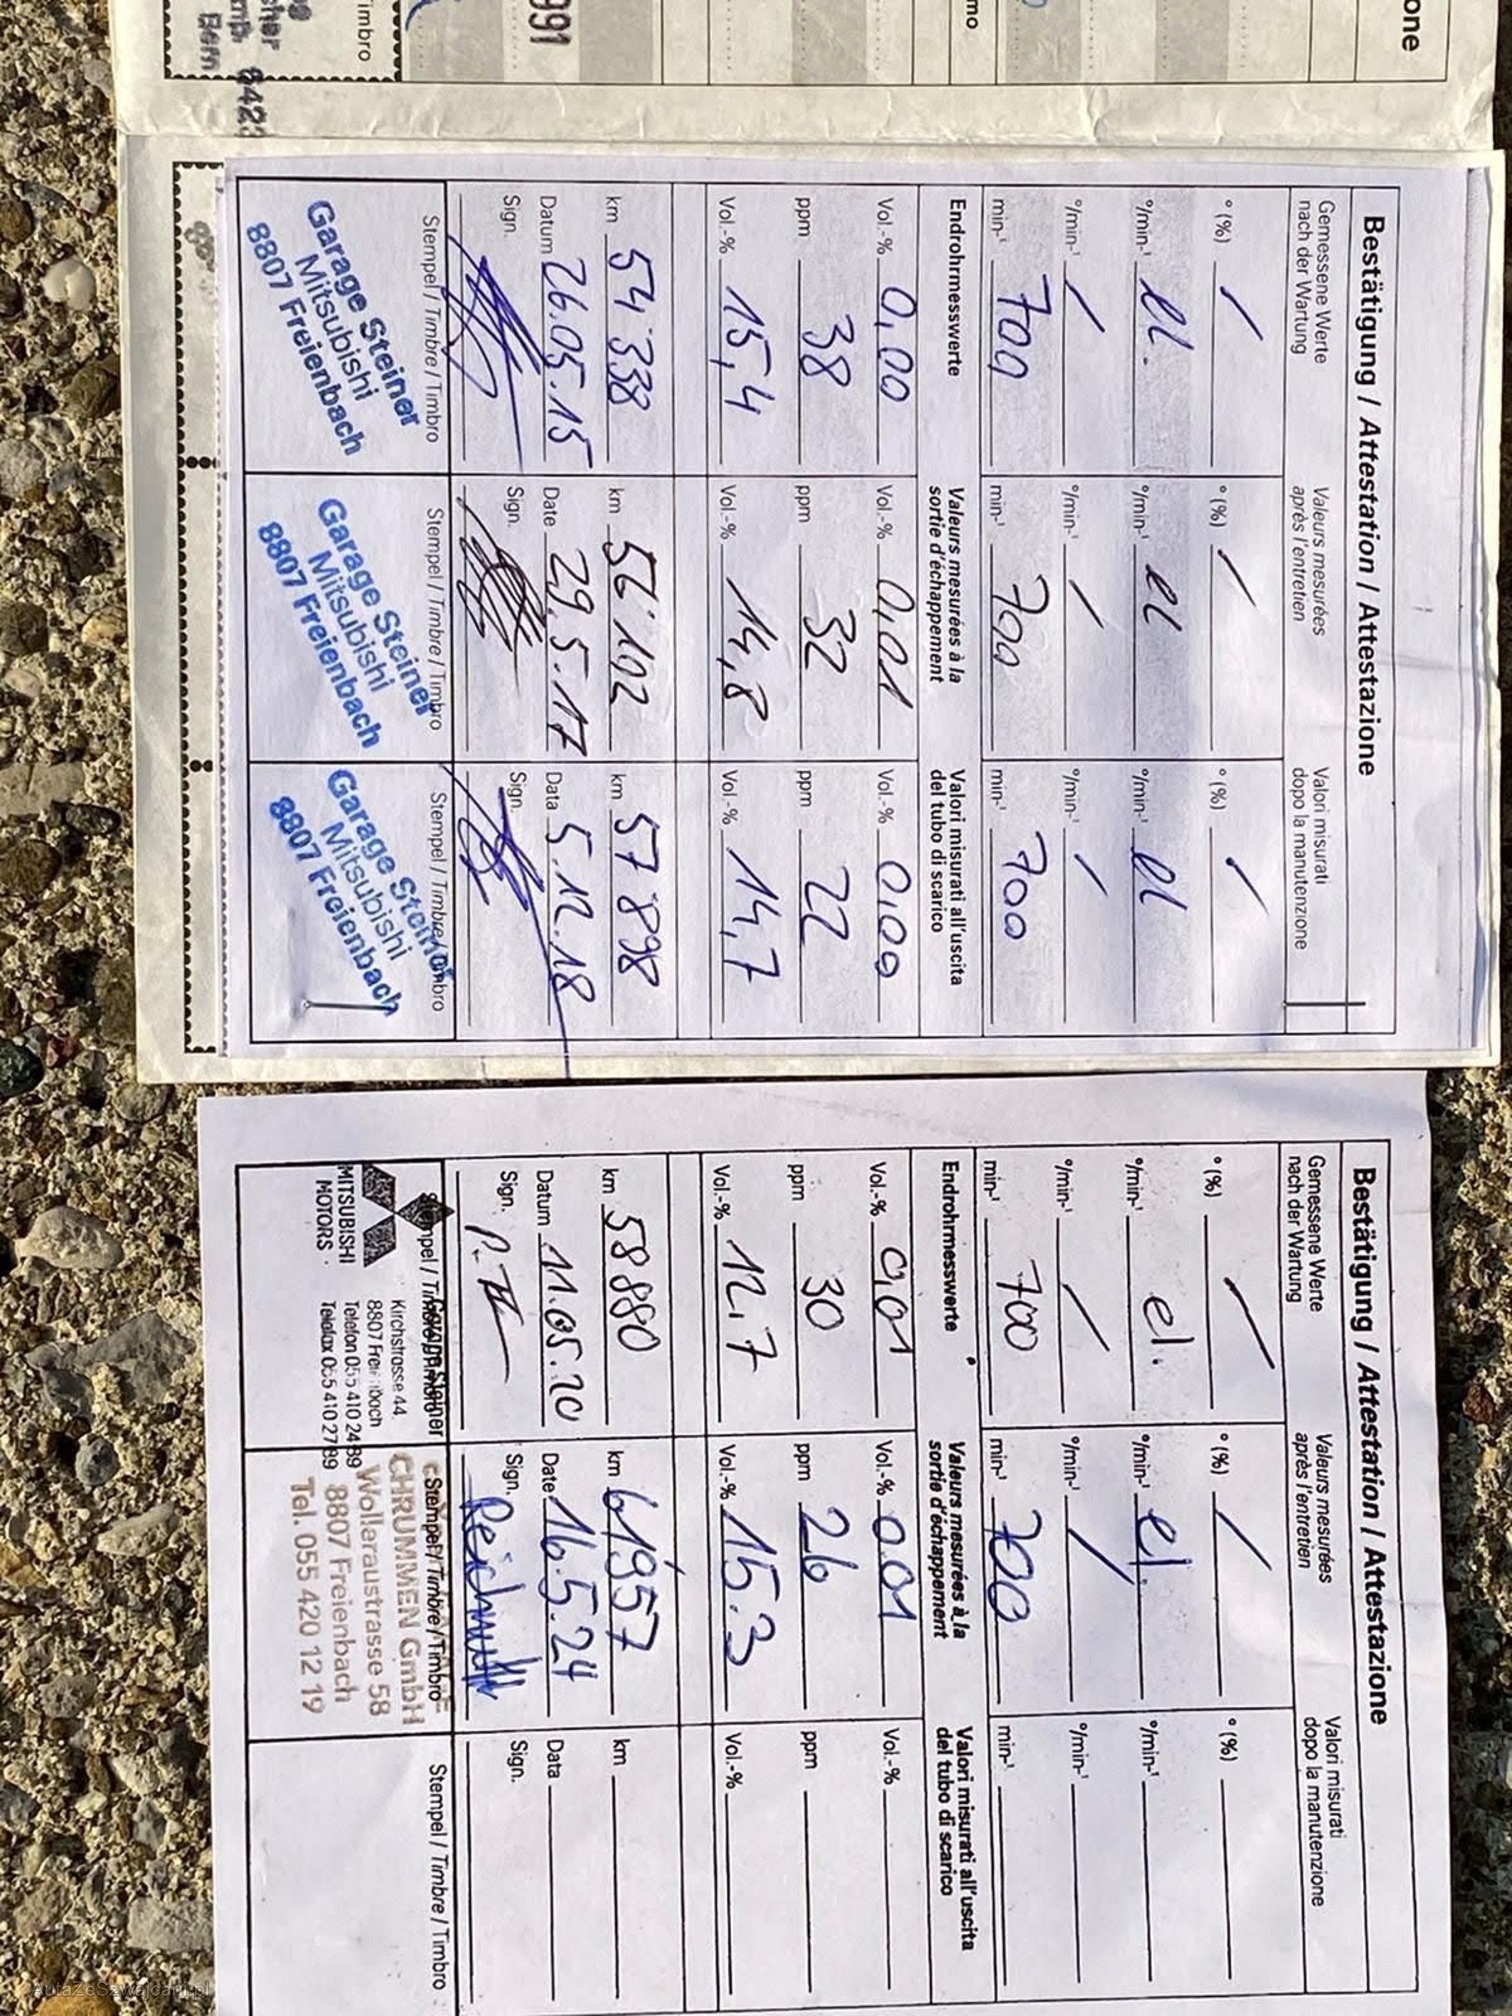 991
mo
one
imbro
Bern
642
Bestätigung / Attestation / Attestazione
Gemessene Werte
nach der Wartung
Valeurs mesurées
après l'entretien
Valori misurati
dopo la manutenzione
° (%) / ° (%) / ° (%) /
°/min-¹ el. °/min-¹ el °/min-¹ el
°/min-¹ / °/min-¹ / °/min-¹ /
min-¹ 700 min-¹ 700 min-¹ 700
Endrohrmesswerte
Valeurs mesurées à la
sortie d'échappement
Valori misurati all'uscita
del tubo di scarico
Vol.-% 0,00 Vol.-% 0,01 Vol.-% 0,00
ppm 38 ppm 32 ppm 22
Vol.-% 15,4 Vol.-% 14,8 Vol.-% 14,7
km 54'338 km 56'102 km 57'898
Datum 26.05.15 Date 29.5.17 Data 5.12.18
Sign. Sign. Sign.
Stempel / Timbre / Timbro Stempel / Timbre / Timbro Stempel / Timbre / Timbro
Garage Steiner
Mitsubishi
8807 Freienbach
Garage Steiner
Mitsubishi
8807 Freienbach
Garage Steiner
Mitsubishi
8807 Freienbach
Bestätigung / Attestation / Attestazione
Gemessene Werte
nach der Wartung
Valeurs mesurées
après l'entretien
Valori misurati
dopo la manutenzione
° (%) / ° (%) / ° (%)
°/min-¹ el. °/min-¹ el. °/min-¹
°/min-¹ / °/min-¹ / °/min-¹
min-¹ 700 min-¹ 700 min-¹
Endrohrmesswerte
Valeurs mesurées à la
sortie d'échappement
Valori misurati all'uscita
del tubo di scarico
Vol.-% 0,01 Vol.-% 0.01 Vol.-%
ppm 30 ppm 26 ppm
Vol.-% 12.7 Vol.-% 15.3 Vol.-%
km 58880 km 61'957 km
Datum 11.05.20 Date 16.5.24 Data
Sign. Sign. Reichmuth Sign.
Stempel / Timbre / Timbro Stempel / Timbre / Timbro
Garage Steiner
Kirchstrasse 44
8807 Freienbach
Telefon 055 410 24 89
Telefax 055 410 27 89
MITSUBISHI
MOTORS
CHRUMMEN GmbH
Wolleraustrasse 58
8807 Freienbach
Tel. 055 420 12 19
AutaZeSzwajcarii.pl